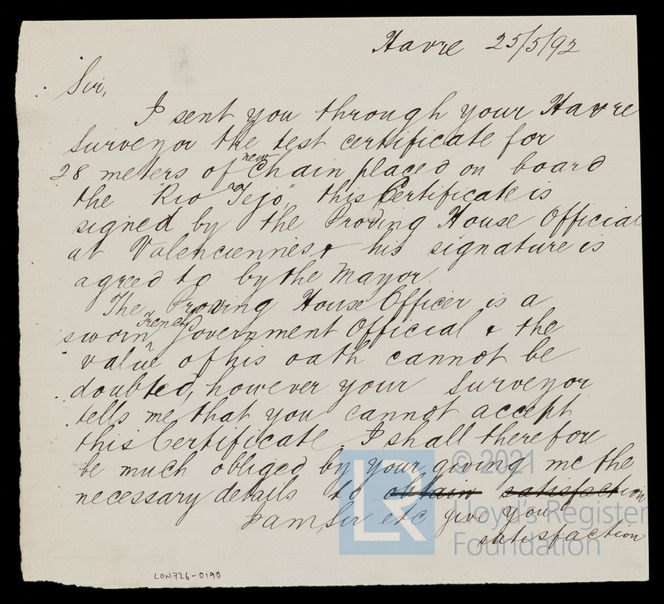 Havre 25/5/92
Sir,
I sent you through your Havre
Surveyor the test certificate for
28 meters of new Chain placed on board
the "Rio Tejo", this Certificate is
signed by the Proving House Official
at Valenciennes & his signature is
agreed to by the Mayor.
The Proving House Officer is a
sworn French Government Official & the
value of his oath cannot be
doubted, however your Surveyor
tells me that you cannot accept
this Certificate. I shall therefore
be much obliged by your giving me the
necessary details to obtain satisfaction
I am Sir etc give you
satisfaction
© 2021
LR
Lloyd's Register
Foundation
LON726-0190